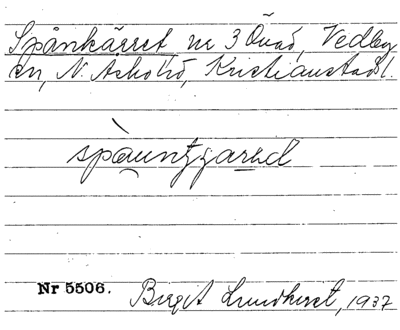 Spånkärret nr 3 Önad, Vedby
sn, N. Asbo hd, Kristianstads l.
spàuntȷaræd
Nr 5506.
Birgit Lundkvist, 1937